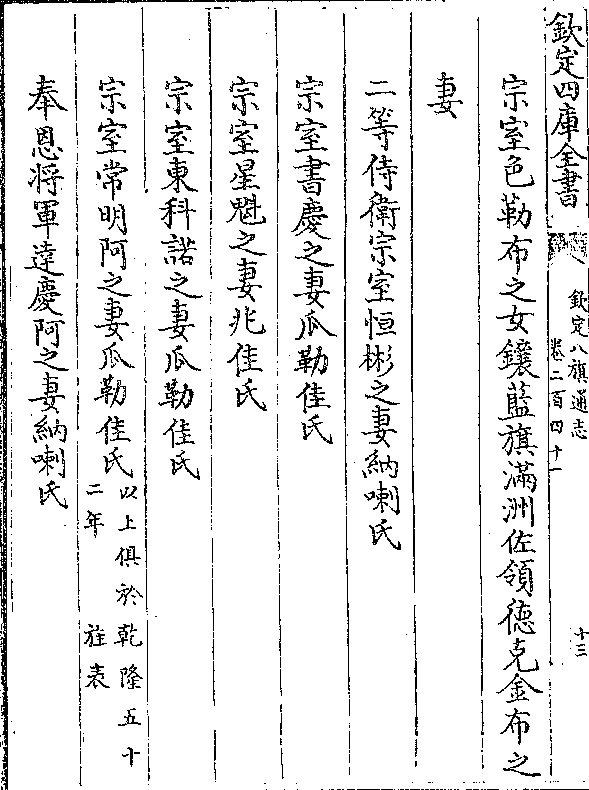 欽定四庫全書
欽定八旗通志
卷二百四十一
十三
宗室色勒布之女鑲藍旗滿洲佐領德克金布之
妻
二等侍衛宗室恒彬之妻納喇氏
宗室書慶之妻瓜勒佳氏
宗室星魁之妻兆佳氏
宗室東科諾之妻瓜勒佳氏
宗室常明阿之妻瓜勒佳氏
以上俱於乾隆五十
二年旌表
奉恩將軍達慶阿之妻納喇氏